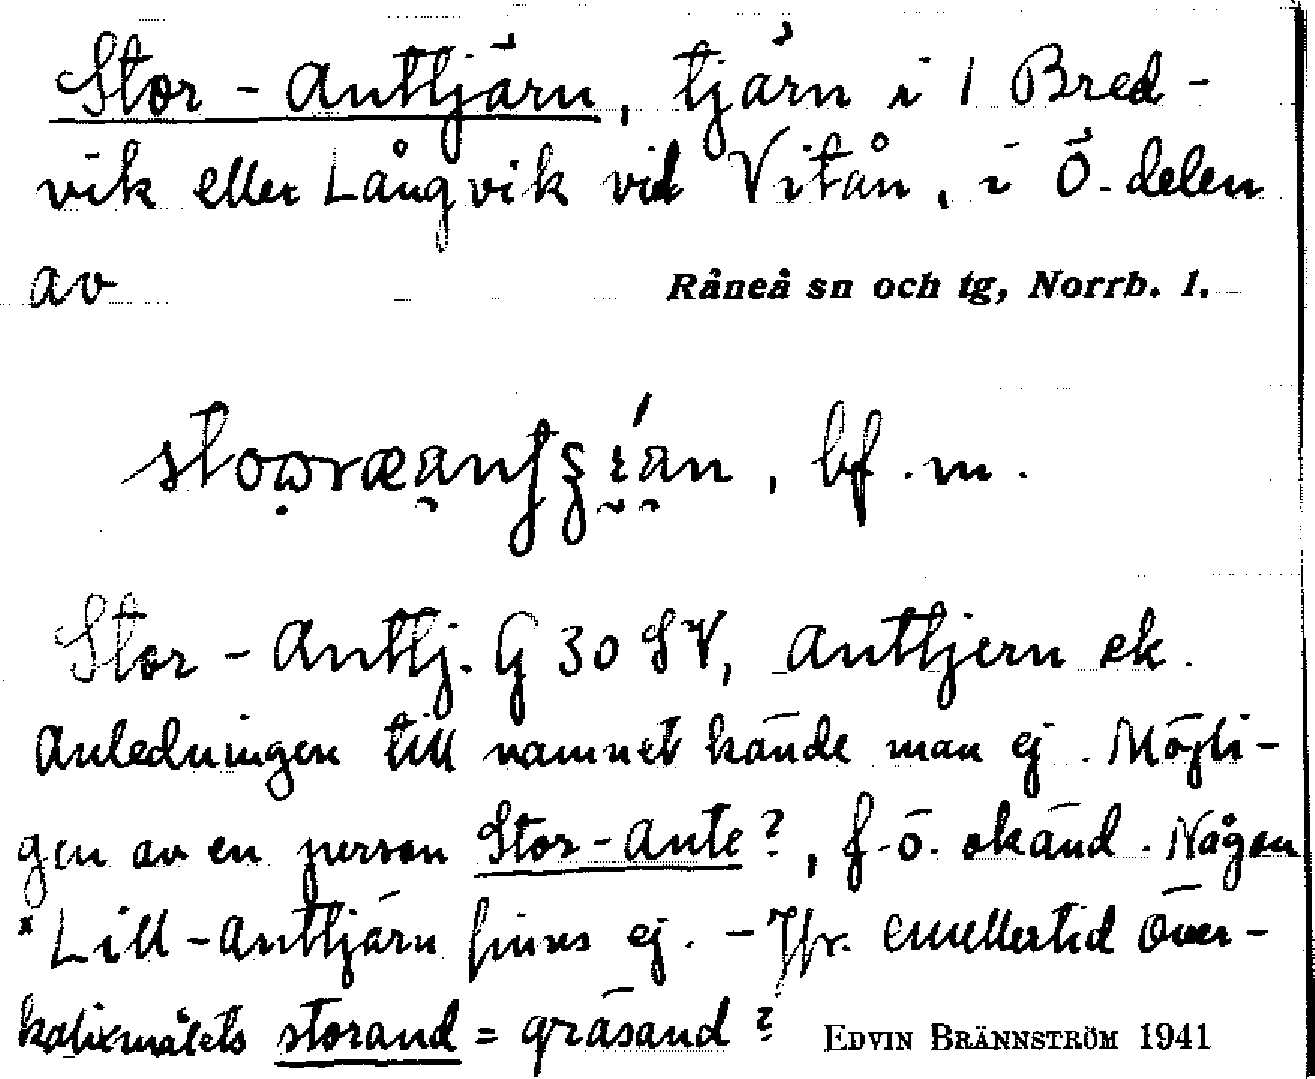 Stor-Anttjärn, tjärn i 1 Bred-
vik eller Långvik vid Vitån, i Ö. delen
av Råneå sn och tg, Norrb. l.
, bf. m.
Stor-Anttj. G 30 SV, Anttjern ek.
Anledningen till namnet kände man ej. Möjli-
gen av en person Stor-Ante?, f.ö. okänd. Någon
*Lill-Anttjärn finns ej. - Jfr. emellertid Över-
kalixmålets storand = gräsand? EDVIN BRÄNNSTRÖM 1941